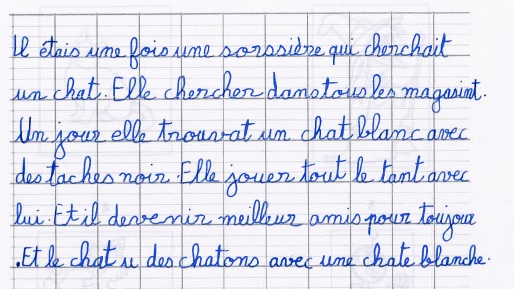 Il étais une fois une sorssière qui cherchait
un chat. Elle chercher dans tous les magasint.
Un jour elle trouvat un chat blanc avec
des taches noir. Elle jouer tout le tant avec
lui. Et il devenir meilleur amis pour toujour
.Et le chat u des chatons avec une chate blanche.